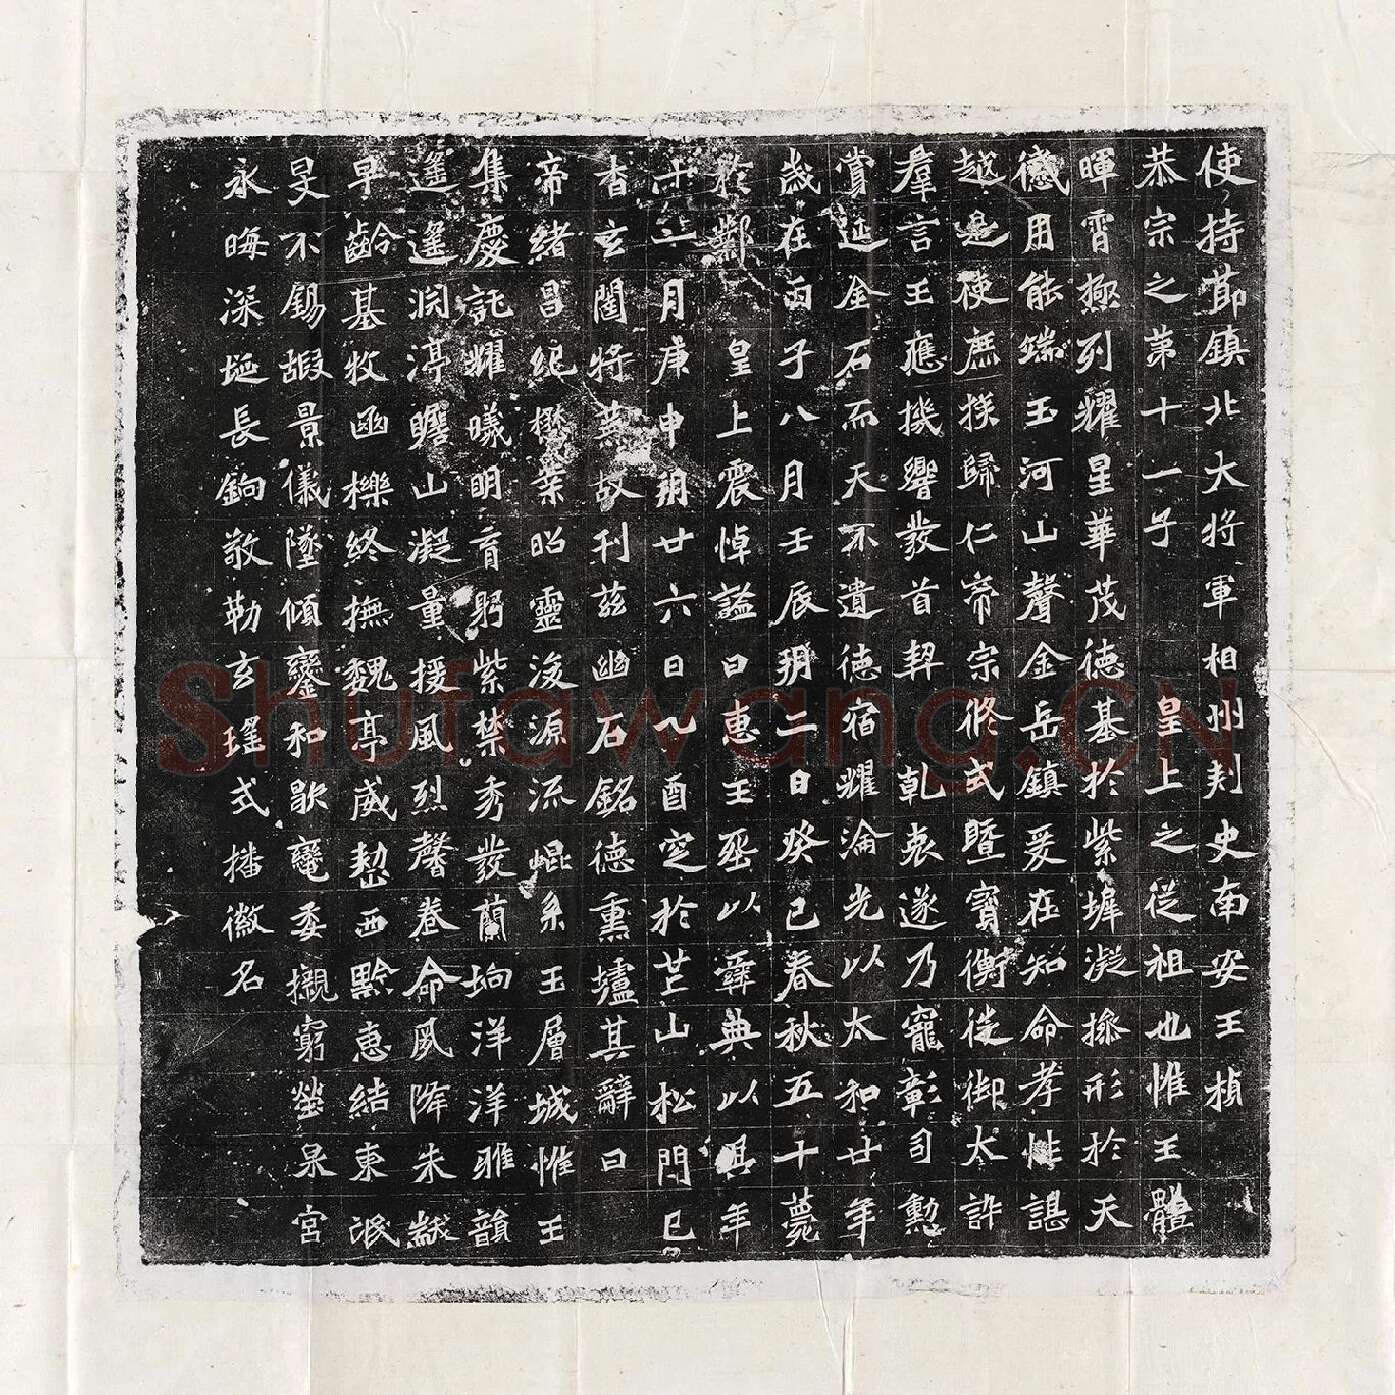 使持節鎮北大將軍相州刺史南安王楨
恭宗之第十一子　皇上之從祖也惟王體
暉霄極列耀星華茂德基於紫墀凝操形於天
感用能端玉河山聲金岳鎮爰在知命孝性諶
越是使庶族歸仁帝宗攸式暨寶衡徙御太訐
羣言王應機響發首契　乾衷遂乃寵彰司勳
賞延金石而天不遺德宿耀淪光以太和廿年
歲在丙子八月壬辰朔二日癸巳春秋五十薨
於鄴　皇上震悼謚曰惠王葬以彝典以其年
十一月庚申朔廿六日乙酉窆於芒山松門已
杳玄闥將蕪故刊茲幽石銘德熏壚其辭曰
帝緒昌紀懋業昭靈浚源流崐系玉層城惟王
集慶託耀曦明育躬紫禁秀發蘭坰洋洋雅韻
遙遙淵渟瞻山凝量援風烈馨卷命夙降朱黻
早齡基牧函櫟終撫魏亭威懃西黔惠結東氓
旻不錫嘏景儀墜傾鑾和歇鳴委櫬窮塋泉宮
永晦深埏長鋦敬勒玄瑤式播徽名
Shufawang.CN